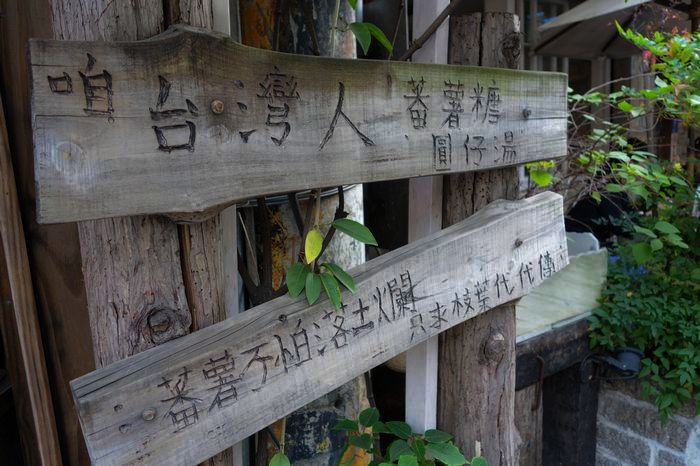 咱台灣人
蕃薯糖
圓仔湯
蕃薯不怕落土爛
只求枝葉代代傳